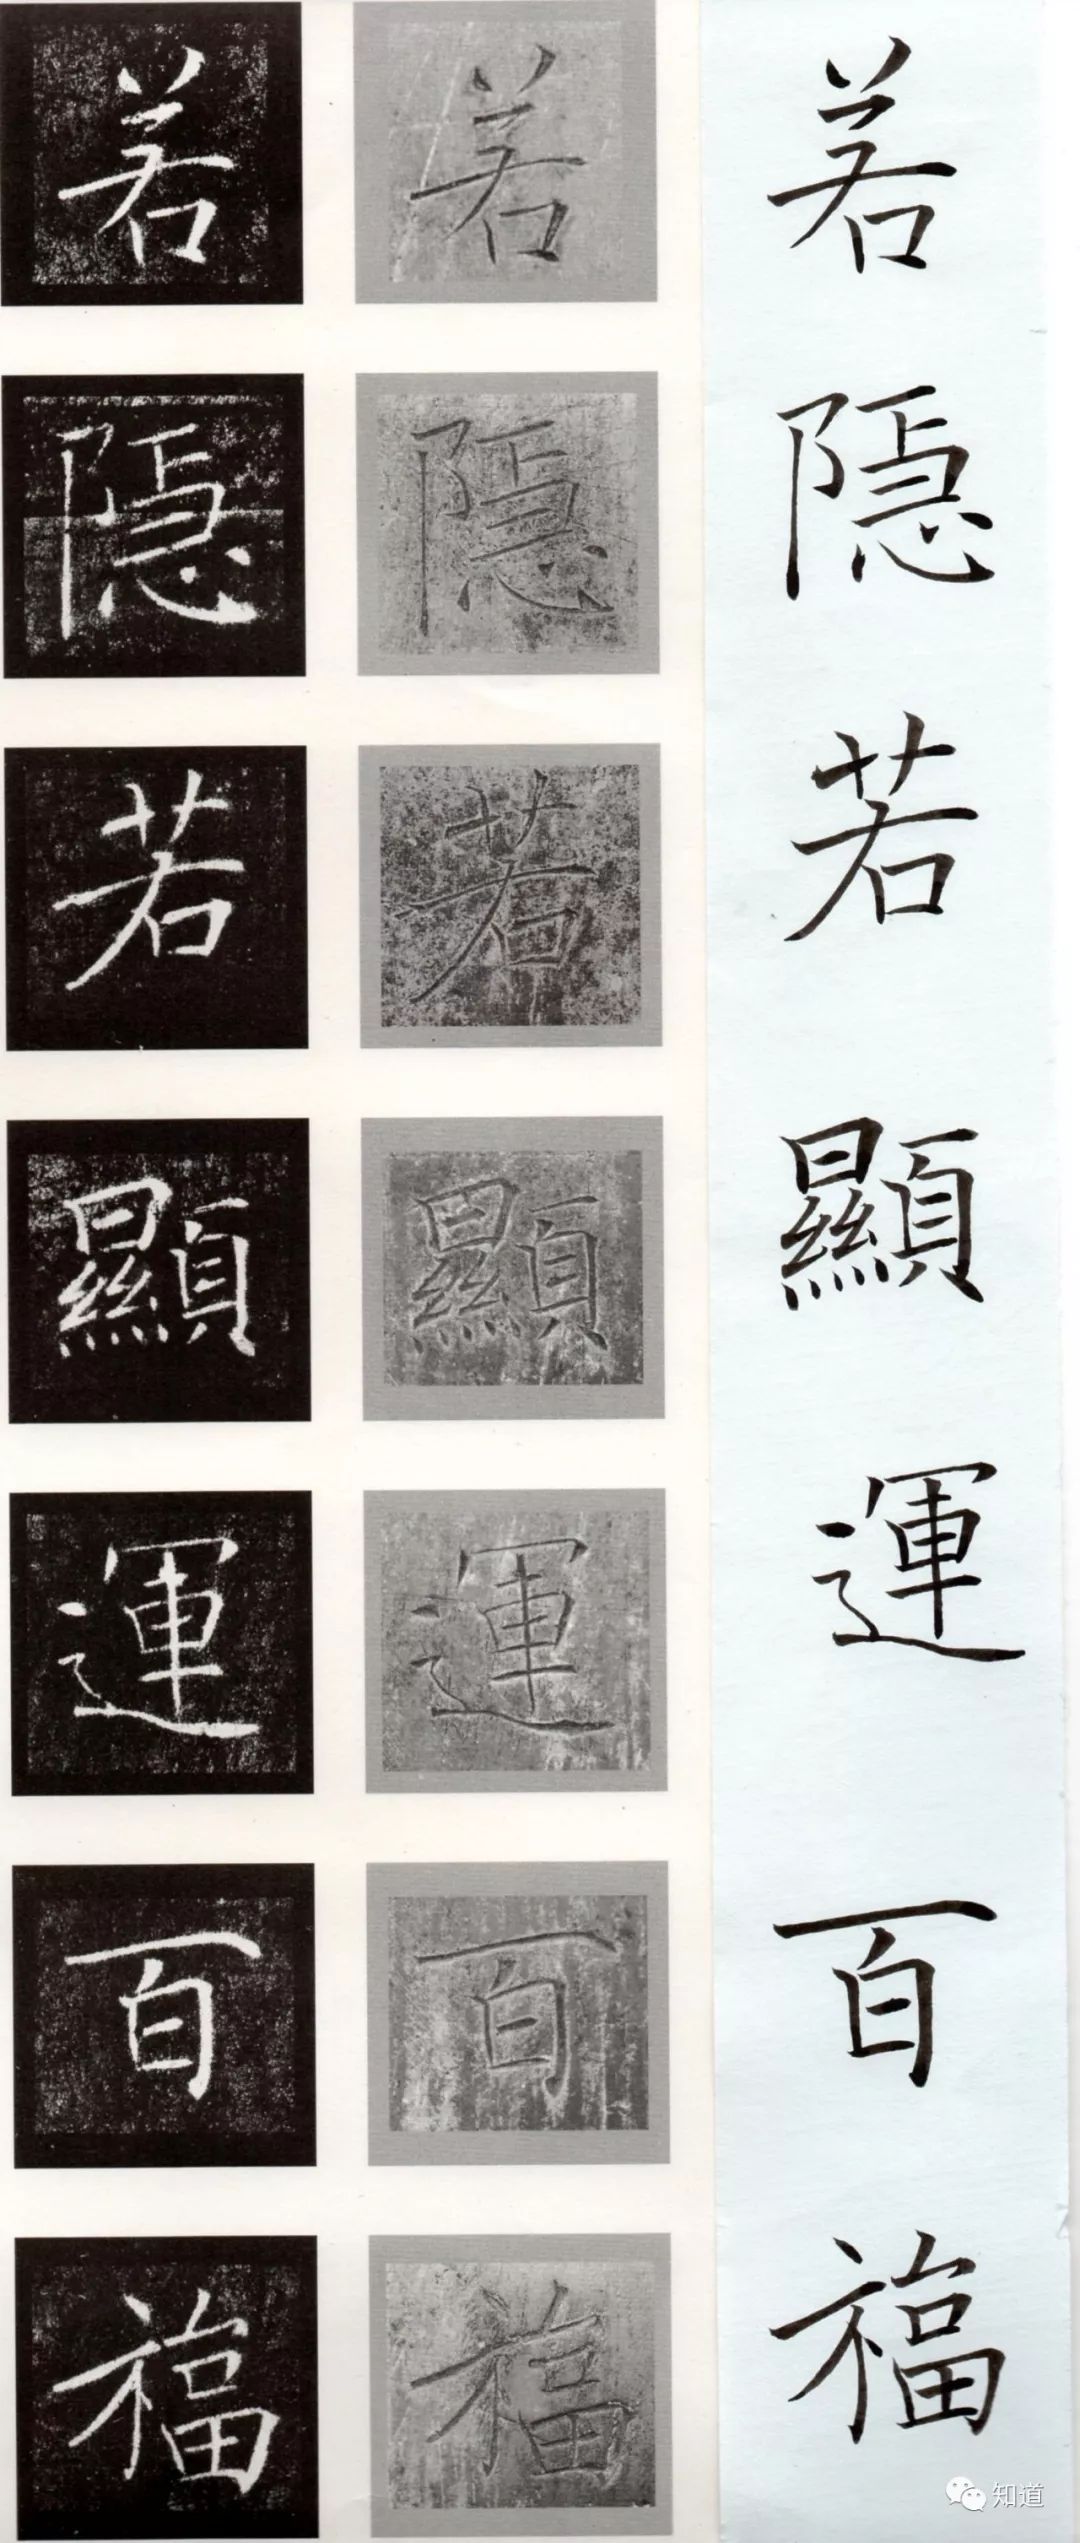 若 若 若
隱 隱 隱
若 若 若
顯 顯 顯
運 運 運
百 百 百
福 福 福
知道